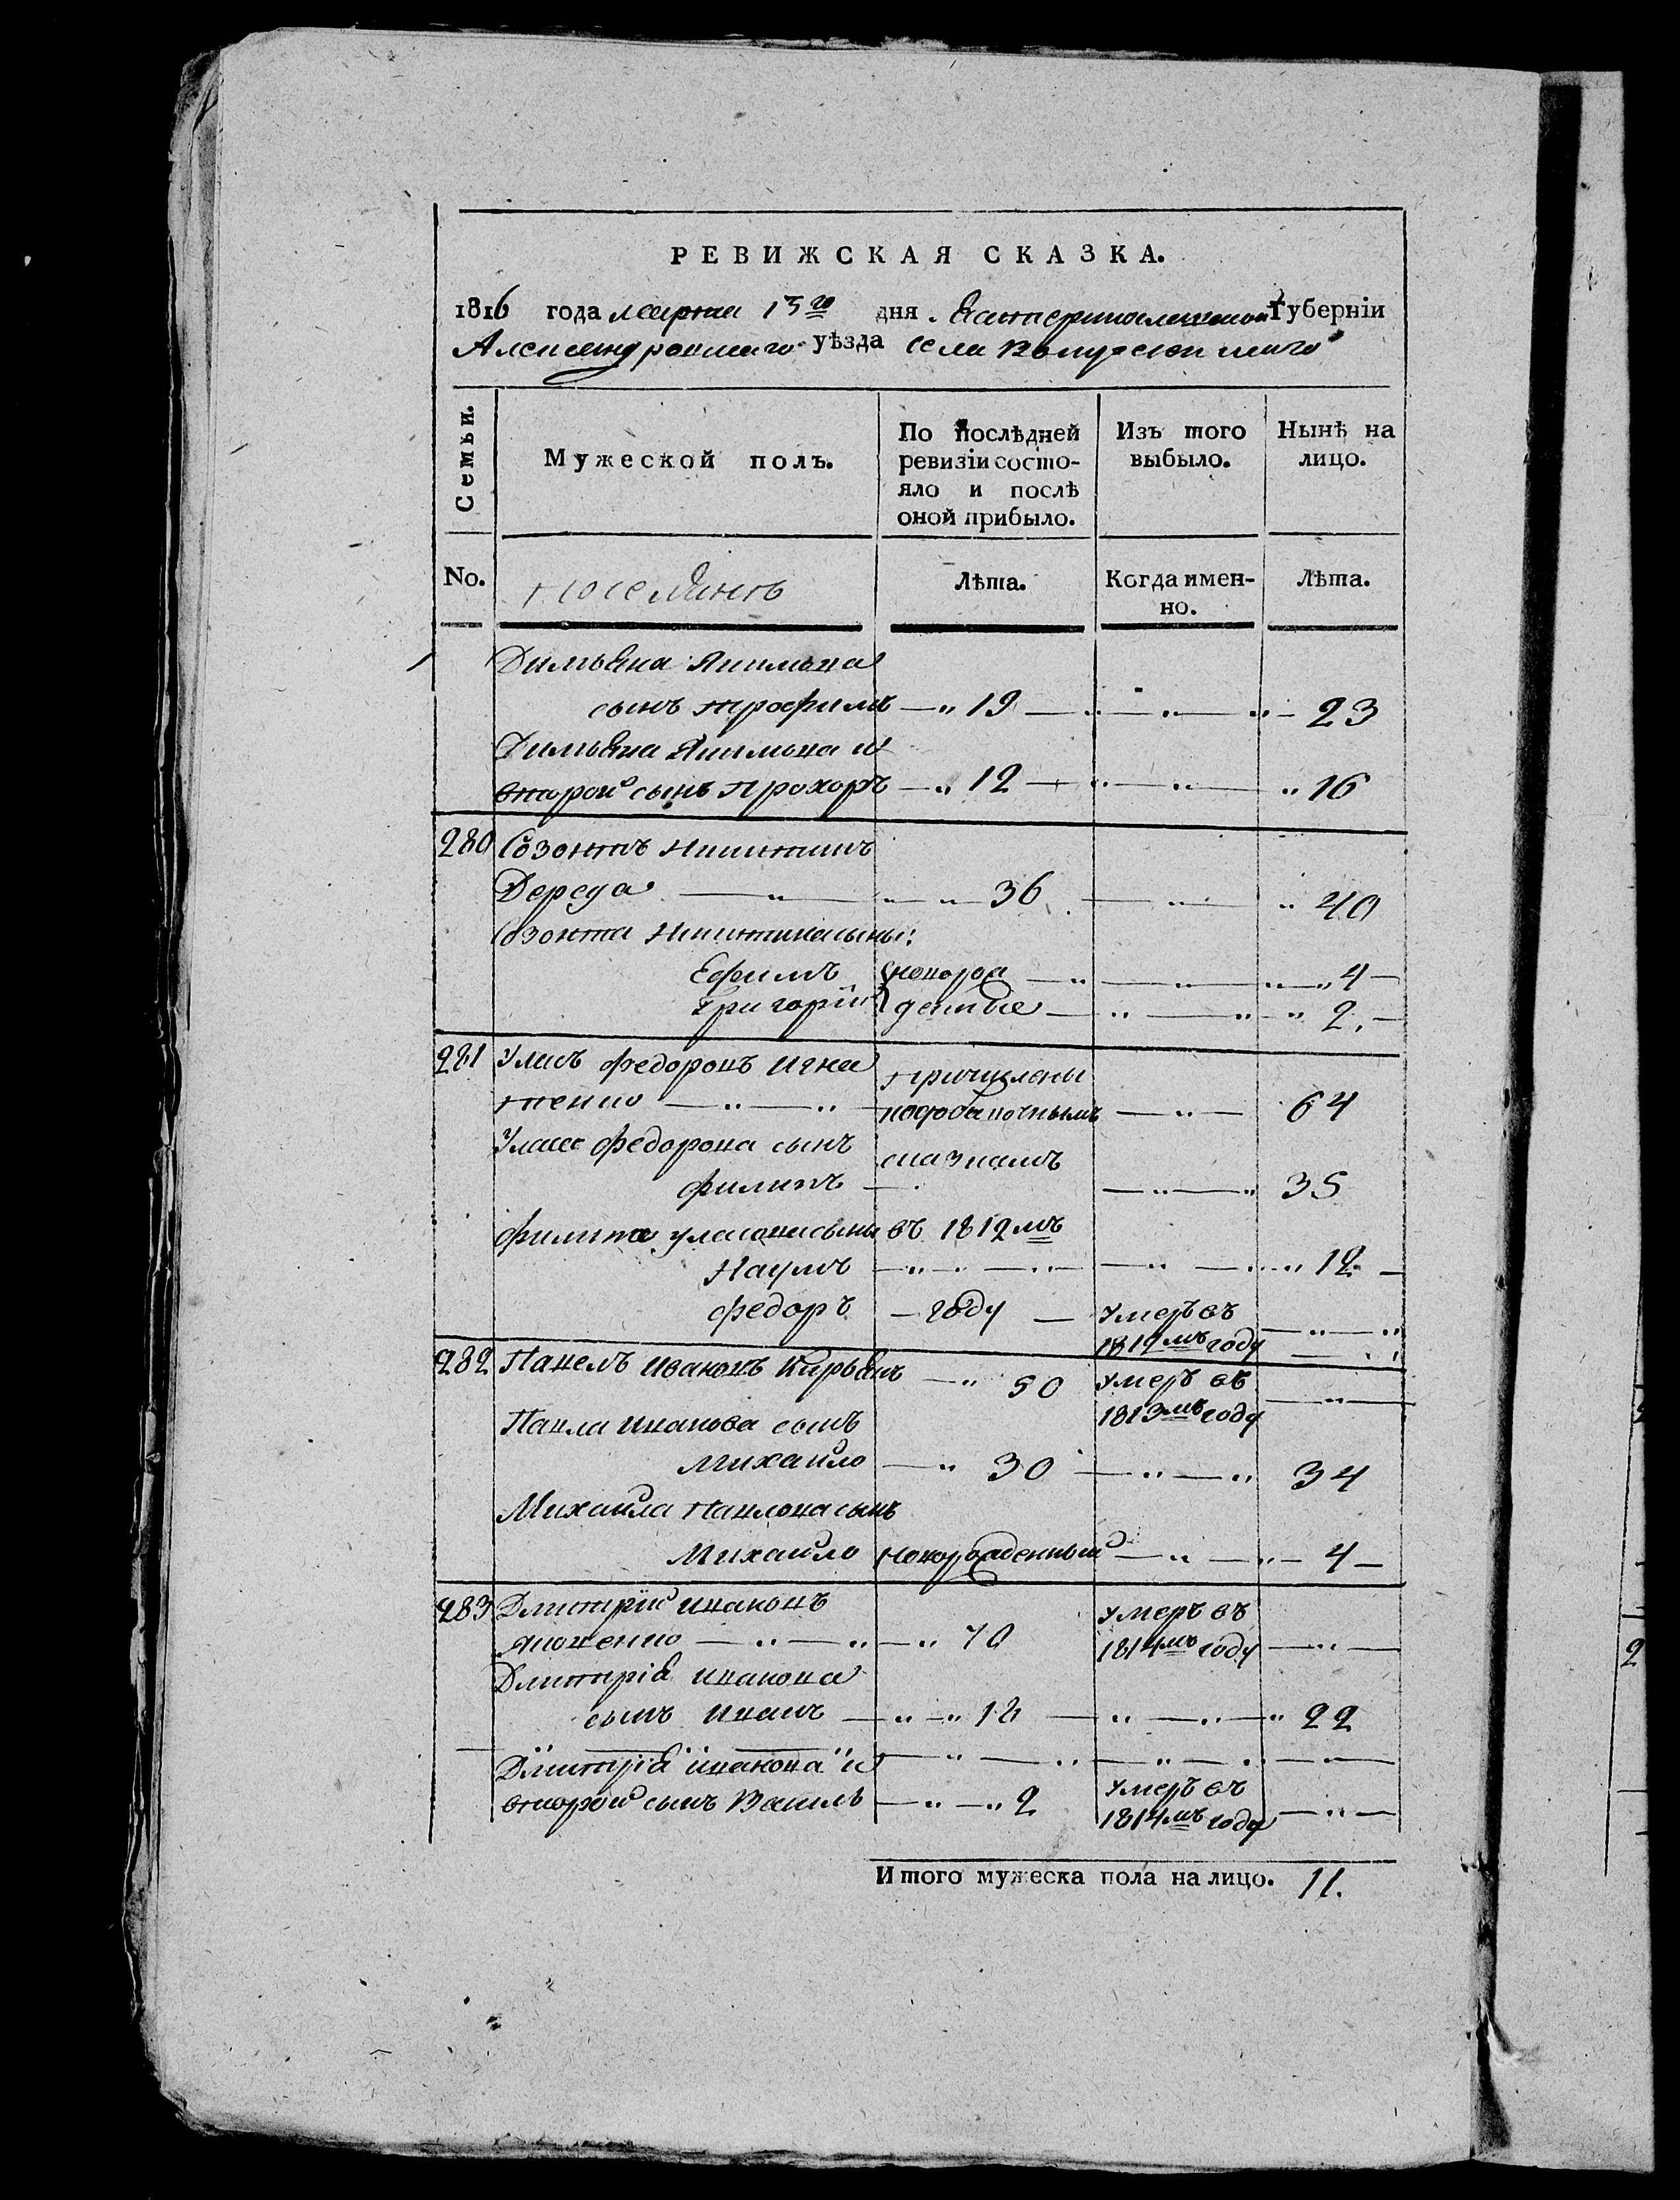 РЕВИЖСКАЯ СКАЗКА.
1816 года марта 13го дня Екатеринославской Губерніи
Александровскаго уѣзда села
Семьи.
Мужеской полъ.
По послѣдней ревизіи состо-
яло и послѣ
оной прибыло.
Изъ того
выбыло.
Нынѣ на
лицо.
No.
поселянъ
Лѣта.
Когда имен-
но.
Лѣта.
Димьяна Якимова
сынъ трофимъ 19 23
Димьяна Якимова и
второй сынъ прохоръ 12 16
280 Созонтъ Никитинъ
Дереда 36 40
Созонта Никитина сыны:
Ефимъ новорож 4
Григорій денные 2
281 Уласъ федоровъ игна причислены
тенко подобавочнымъ 64
Уласа федорова сынъ сказкамъ
филипъ 35
филипа уласова сыны въ 1812мъ
Наумъ 12
федоръ году умеръ въ
1812мъ году
282 Павелъ ивановъ Кирьянъ 50 умеръ въ
1813мъ году
Павла иванова сынъ
михайло 30 34
Михайла павлова сынъ
михайло новорожденный 4
283 Дмитрій ивановъ умеръ въ
яковенко 70 1814мъ году
Дмитрія иванова
сынъ иванъ 18 22
Дмитрія иванова и
второй сынъ Василь 2 умеръ въ
1814мъ году
Итого мужеска пола на лицо. 11.